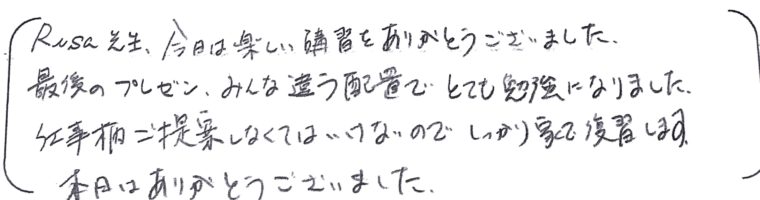 Risa先生、今日は楽しい講習をありがとうございました.
最後のプレゼン、みんな違う配置でとても勉強になりました.
仕事柄ご提案しなくてはいけないのでしっかり家で復習します.
本日はありがとうございました.